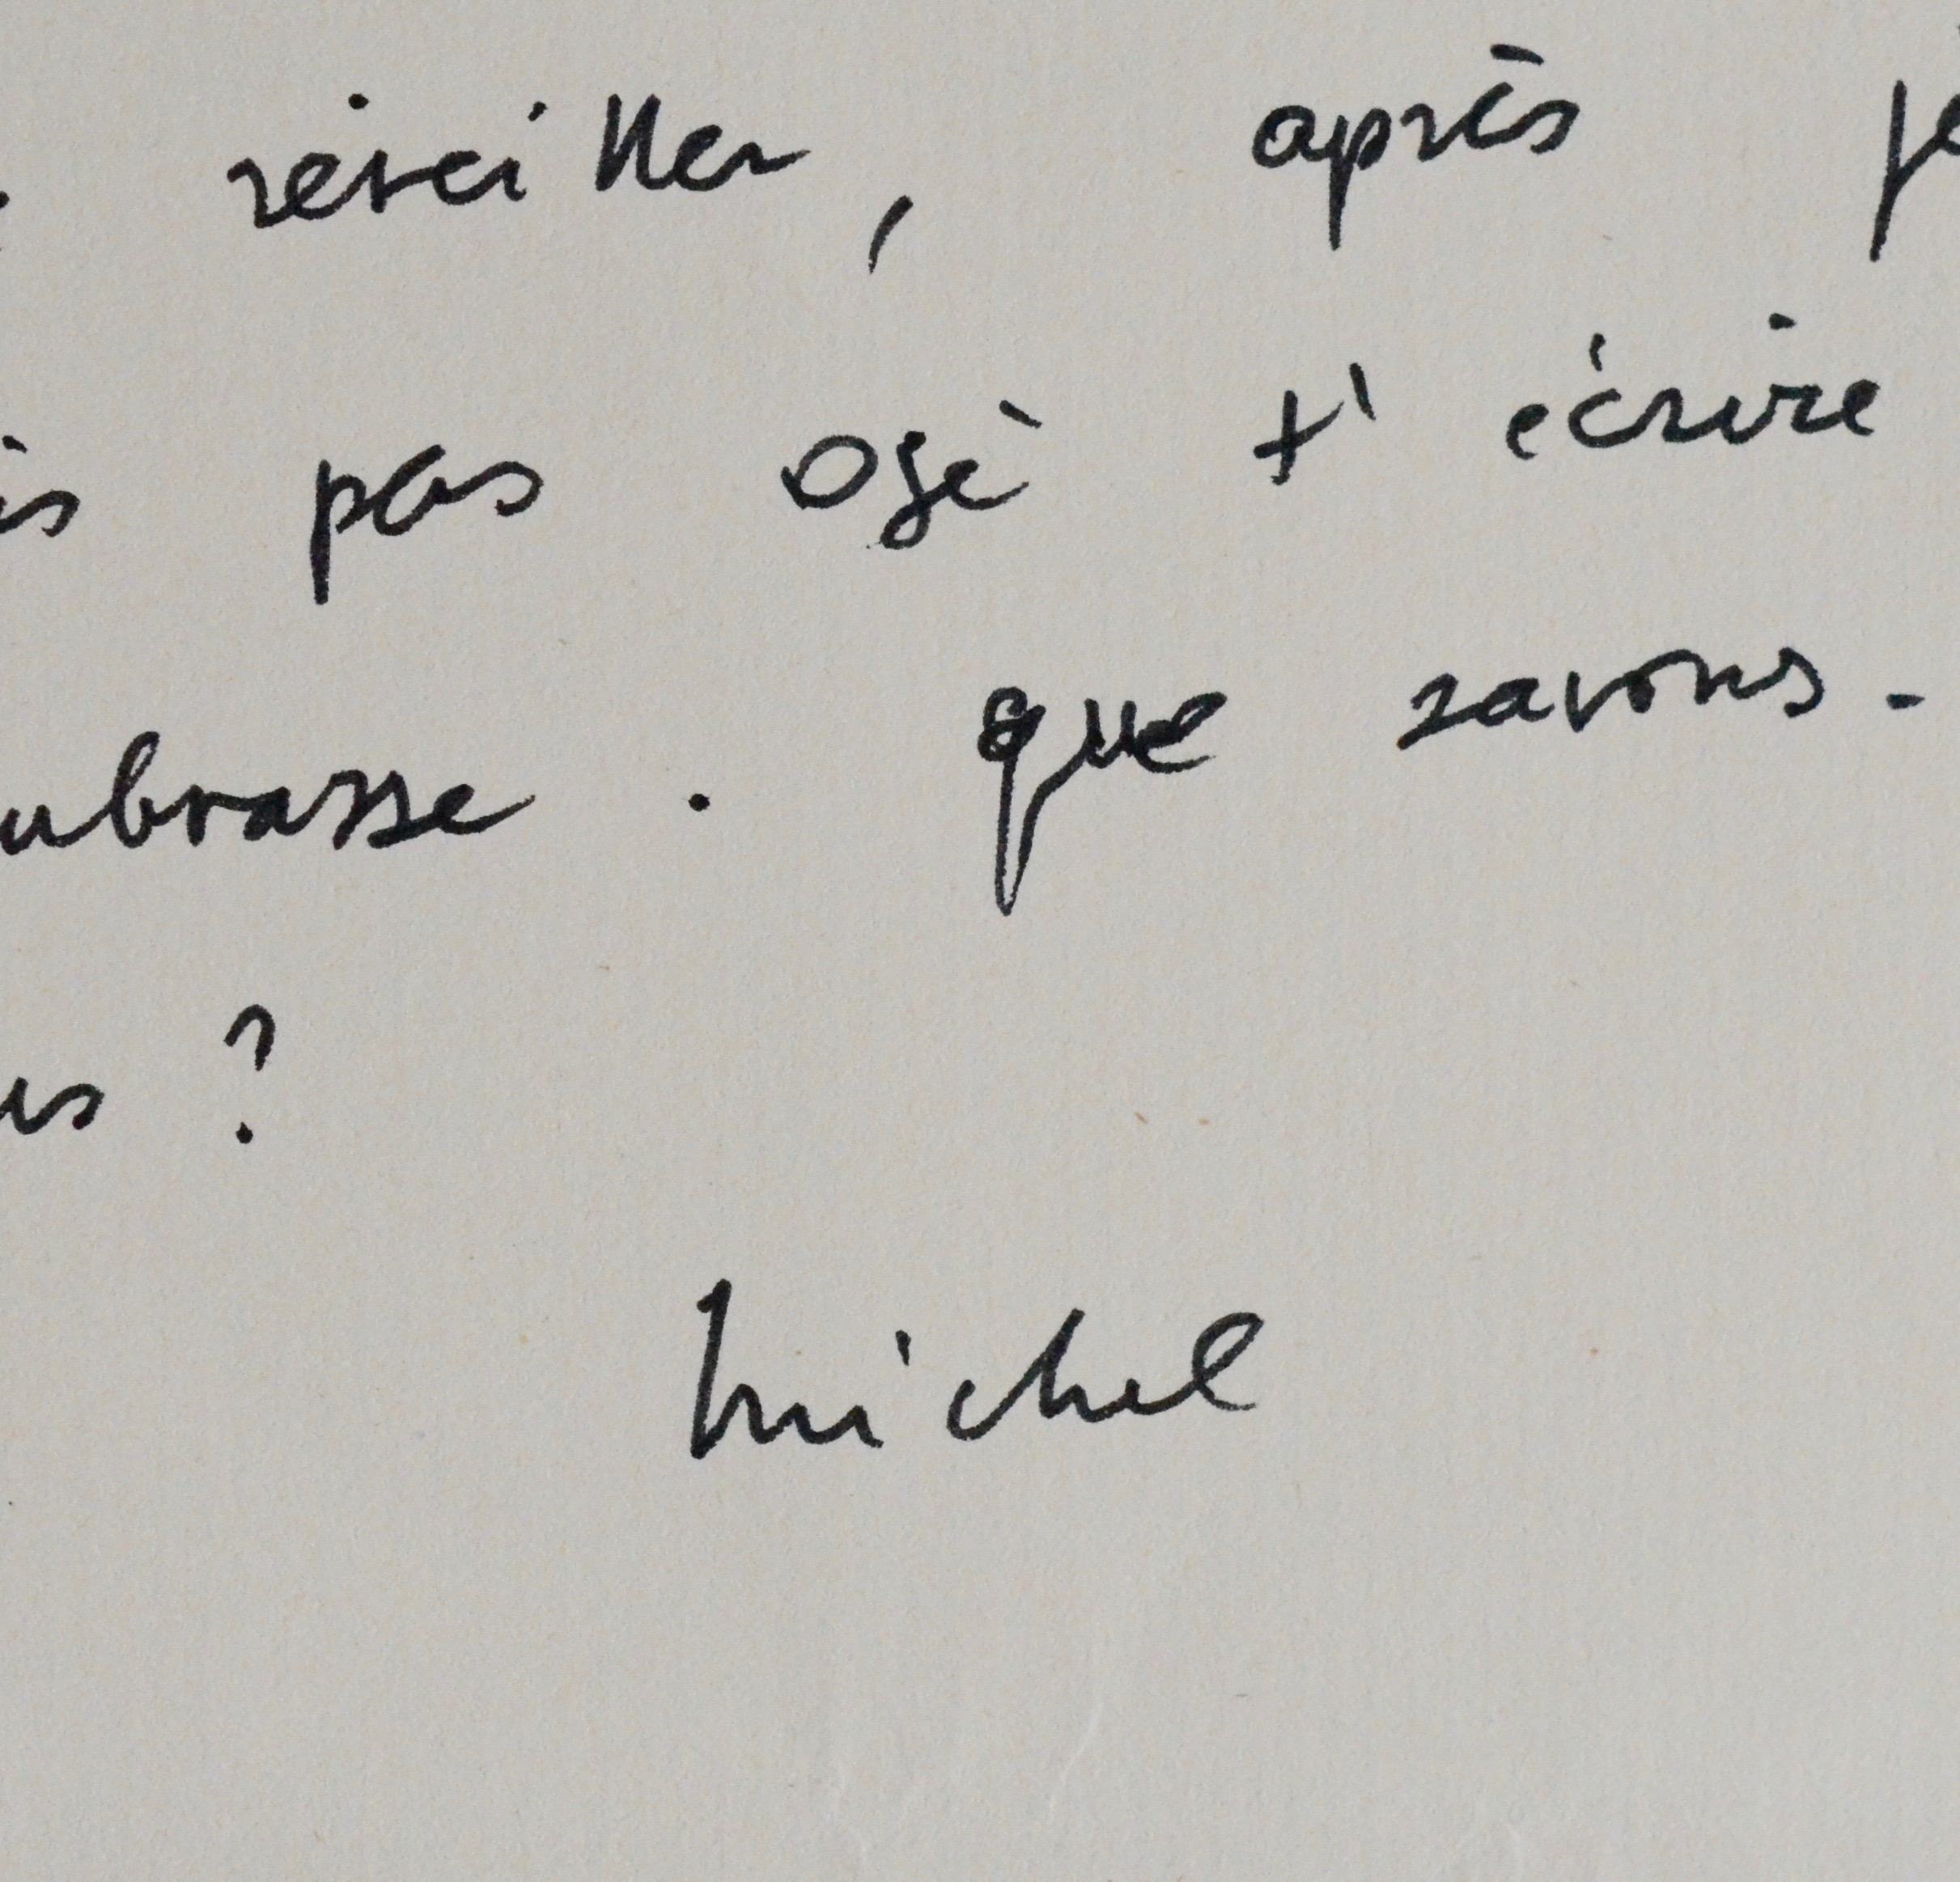 réveiller, après je
is pas osé t'écrire
mbrasse. que savons-
us ?
Michel